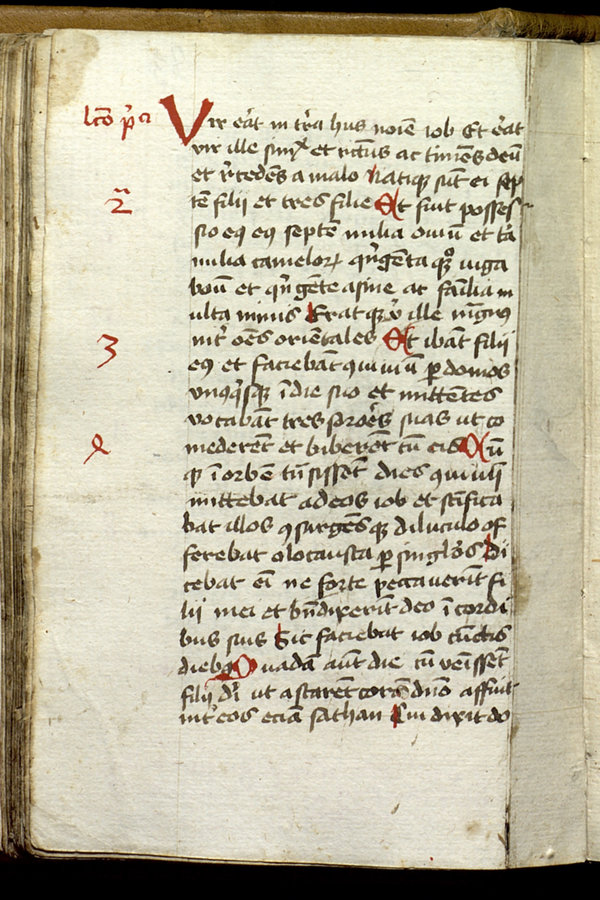 lcō pª
Vir erat in t'ra hus noīe iob Et erat
vir ille simpˣ et rectus ac timēs deū
et recedēs a malo Natiqꝫ sūt ei sep
2ª
tē filii et tres filie Et fuit posses
sio eiꝰ septē milia oviū et t'a
milia cameloꝝ qͥngēta qꝫ iuga
boū et qͥngēte asine ac familia m
ulta nimis Erat qꝫ vͥ ille mag̅ꝰ
3
int' oēs orientales Et ibāt filii
eiꝰ et faciebāt ꝯuiuiū ꝑ domos
vnꝰqͥsqꝫ ī die suo et mittentes
vocabāt tres sorores suas ut co
4
mederēt et biberēt cū eis Cū
qꝫ ī orbē trāsissēt dies ꝯuiuii
mittebat ad eos iob et sc̄ifica
bat illos ꝯsurgēsqꝫ diluculo of
ferebat olocausta ꝑ singlos Di
cebat eī ne forte peccauerīt fi
lii mei et bn̄dixerīt deo ī cordi
bus suis Sic faciebat iob cūctis
diebꝫ Quadā aūt die cū venissēt
filii dī ut astarēt corā dn̄o affuit
int' eos eciā sathan Cui dixit do